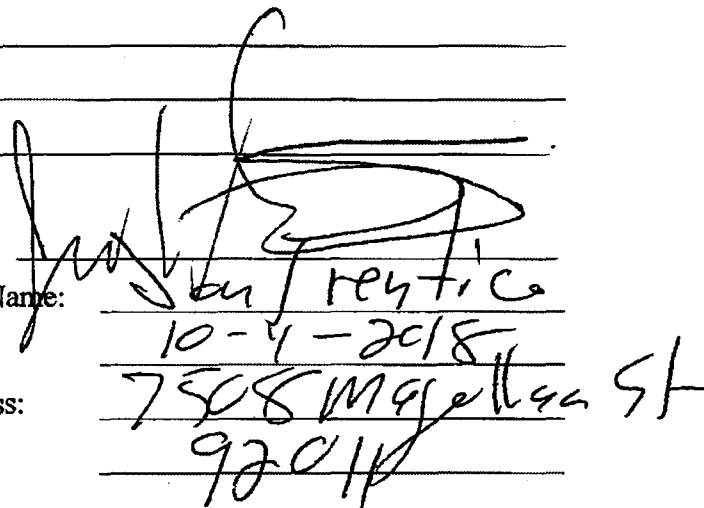 Name: Jon Prentice
10-4-2018
ss: 7508 Magellan St